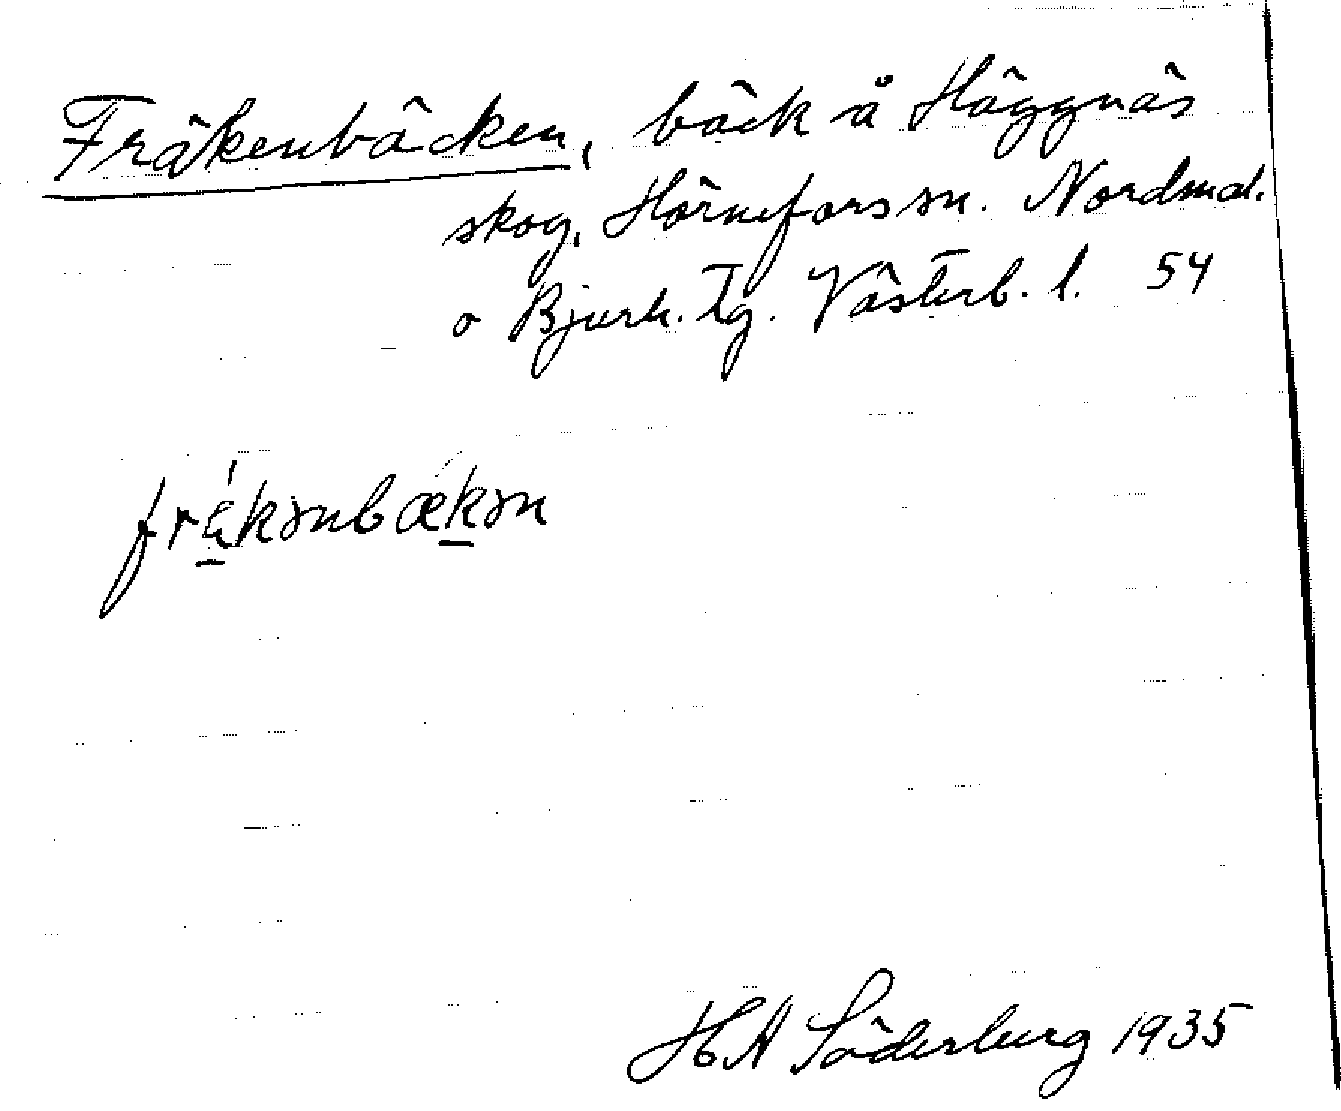 Fräkenbäcken, bäck å Häggnäs
skog, Hörnefors sn. Nordmal.
o Bjurh. tg. Västerb. l. 54
frä́kənbækən
H A Söderberg 1935